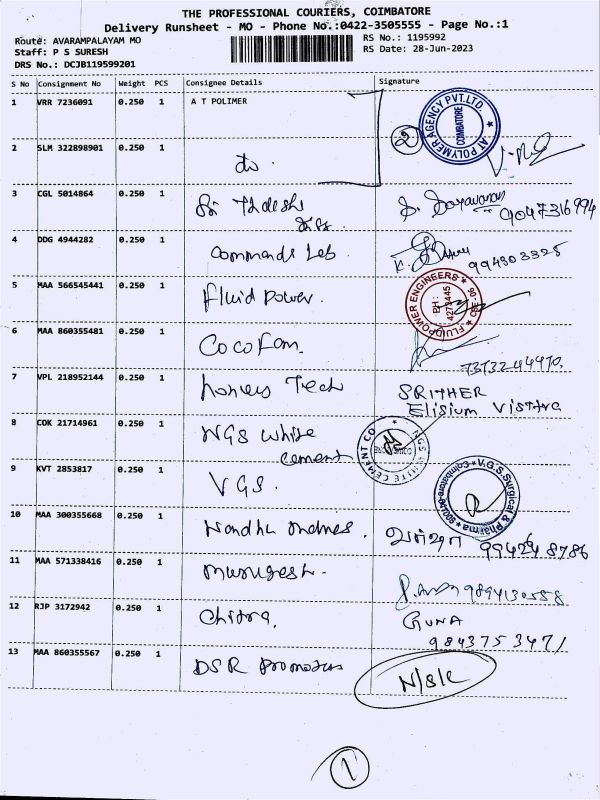 THE PROFESSIONAL COURIERS, COIMBATORE
Delivery Runsheet - MO - Phone No.:0422-3505555 - Page No.:1
Route: AVARAMPALAYAM MO
RS No.: 1195992
Staff: P S SURESH
RS Date: 28-Jun-2023
DRS No.: DCJB119599201
S No Consignment No Weight PCS Consignee Details Signature
1 VRR 7236091 0.250 1 A T POLIMER
AT POLYMER AGENCY PVT.LTD.
COIMBATORE
2
2 SLM 322898901 0.250 1 do.
3 CGL 5014864 0.250 1 Sri
9047316994
4 DDG 4944282 0.250 1 Commands Lab
994303325
5 MAA 566545441 0.250 1 Fluid power.
FLUIDPOWER ENGINEERS
PH :
4273445
CBE - 06
6 MAA 860355481 0.250 1 Coco
7373244970.
7 VPL 218952144 0.250 1 Tech
SRITHER
Elisium Vistha
8 COK 21714961 0.250 1 NGS white
cement
NGS WHITE CEMENT CO
9 KVT 2853817 0.250 1 VGS.
V.G.S. Surgical & Pharma
Coimbatore
10 MAA 300355668 0.250 1 Nandhu
994248786
11 MAA 571338416 0.250 1 Murugesh.
9894130558
12 RJP 3172942 0.250 1 Chitra.
GUNA
9843753471
13 MAA 860355567 0.250 1 DSR Promoters
N/S/L
1